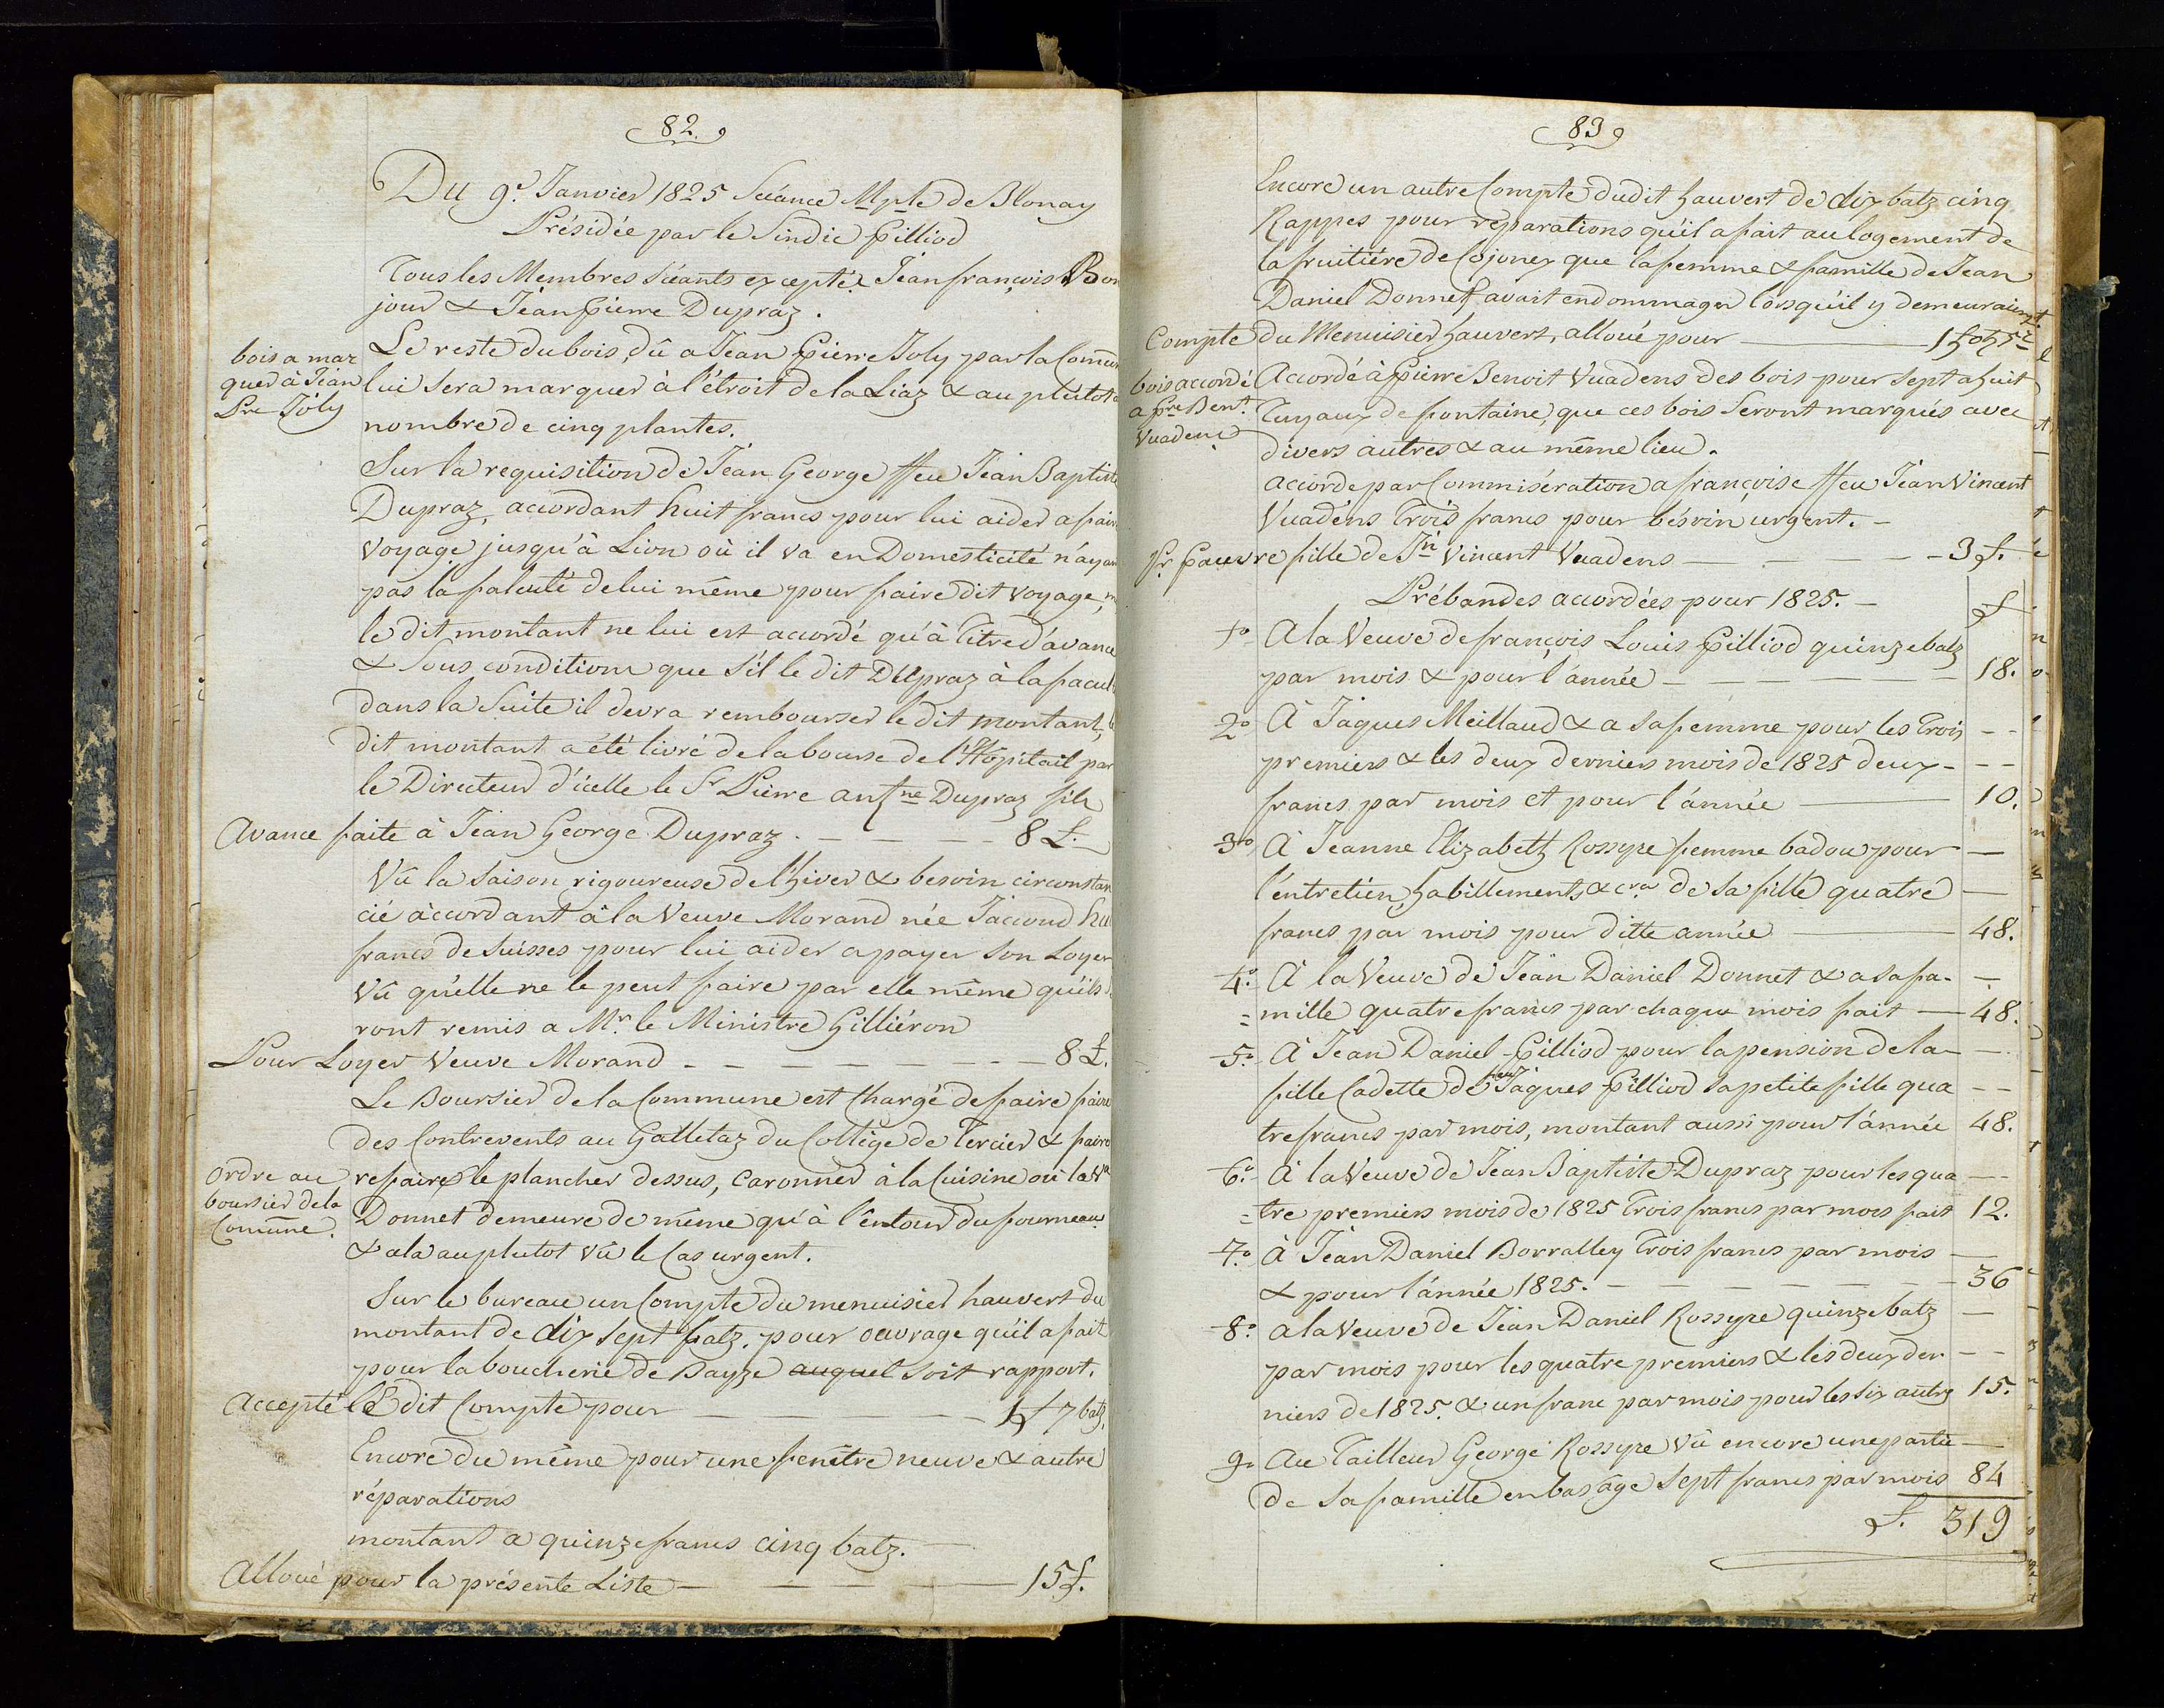 82.
Du 9.e Janvier 1825 Séance Mple de Blonay
Présidée par le Sindic Pilliod
Tous les Membres Séants excepté Jean françois Bon
jour & Jean Pierre Dupraz.
bois a mar
quer à Jean
Pre Joly
Le reste du bois dû a Jean Pierre Joly par la Comune
lui sera marquer à l'étroit de la Liaz & au plutot
nombre de cinq plantes.
Sur la requisition de Jean George ffeu Jean Baptiste
Dupraz, accordant huit francs pour lui aider a faire
voyage jusqu'à Lion où il va en Domesticité n'ayant
pas la faculté de lui même pour faire dit voyage,
le dit montant ne lui est accordé qu'à titre d'avance
& Sous condition que s'il le dit Dupraz à la facul
dans la Suite il devra rembourser le dit montant,
dit montant a été livré de la bourse de l'Hôpitail par
le Directeur d'icelle le Sr Pierre antne Dupraz fils
Avance faite à Jean George Dupraz. - - - - 8 £.
Vû la Saison rigoureuse de l'hiver & besoin circonstan
cié accordant à la Veuve Morand née Jaccoud hui
francs de Suisses pour lui aider a payer son Loyer
Vû qu'elle ne le peut faire par elle même qu'ils
ront remis a Mr. le Ministre Gilliéron
Pour Loyer Veuve Morand - - - - - - - 8 £.
Le Boursier de la Commune est Chargé de faire faire
des Contrevents au Galletaz du Collège de Tercier & faire
ordre au
boursier de la
Comune.
refaire le plancher dessus, Caronner à la Cuisine où la Ve
Donnet demeure de même qu'à l'entour du fourneau
& cela au plutot vû le Cas urgent.
Sur le bureau un Compte du menuisier hauvert du
montant de dix sept batz. pour ouvrage qu'il a fait
pour la boucherie de Bayze auquel soit rapport.
Accepté le dit Compte pour - - - - 1 f 7 batz.
Encore du même pour une fenêtre neuve & autre
réparations
montant a quinze francs cinq batz. -
Alloué pour la présente Liste - - - - 15 f.
83
Encore un autre Compte dudit hauvert de dix batz cinq
Rappes pour réparations qu'il a fait au logement de
la fruitière de Cojonex que la femme & famille de Jean
Daniel Donnet, avait endommager lorsqu'il y demeuraient.
Compte du Menuisier hauvert, alloué pour - 1 f 0 b 5 r
bois accordé
a Pre Bent.
Vuadens
Accordé à Pierre Benoit Vuadens des bois pour sept a huit
Tuyaux de fontaine, que ces bois Seront marqués avec
divers autres & au même lieu.
accorde par Commisération a françoise ffeu Jean Vincent
Vuadens Trois francs pour bésoin urgent. -
Pr. Pauvre fille de Jn Vincent Vuadens - - - - 3 f.
Prébandes accordées pour 1825. - f
1o A la Veuve de françois Louis Pilliod quinze batz
par mois & pour l'année - - - - - - 18.
2o À Jaques Meillaud & a sa femme pour les Trois - -
premiers & les deux derniers mois de 1825 deux - - -
francs par mois et pour l'année - 10.
3o À Jeanne Elizabeth Rossyre femme badou pour -
l'entretien, habillements & cra de sa fille quatre -
francs par mois pour ditte année - 48.
4o. À la Veuve de Jean Daniel Donnet & a sa fa- -
= mille quatre francs par chaque mois fait - 48.
5o. À Jean Daniel Pilliod pour la pension de la - -
fille Cadette de feu Jaques Pilliod sa petite fille qua - -
tre francs par mois, montant aussi pour l'année 48.
6o. À la Veuve de Jean Baptiste Dupraz pour les qua - -
= tre premiers mois de 1825 Trois francs par mois fait 12.
7o. à Jean Daniel Borralley Trois francs par mois -
& pour l'année 1825. - - - - - - - 36
8o. a la Veuve de Jean Daniel Rossyre quinze batz -
par mois pour les quatre premiers & les deux der - -
niers de 1825. & un franc par mois pour les six autres 15.
9o Au Tailleur George Rossyre Vû encore une partie -
de Sa famille en bas âge Sept francs par mois 84
f. 319